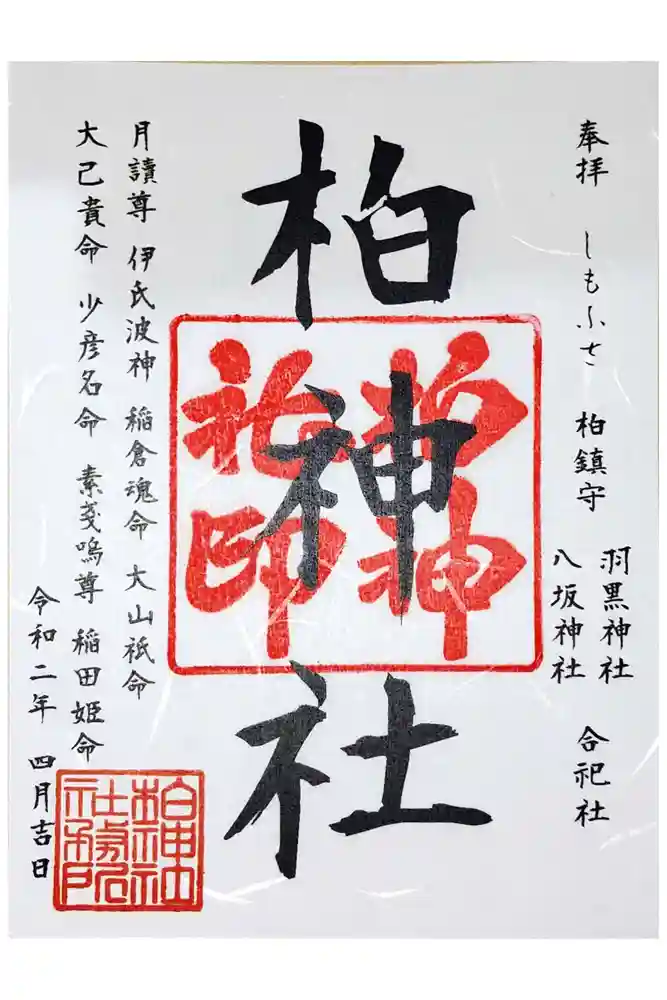 奉拝 しもふさ 柏鎮守
羽黒神社
八坂神社
合祀社
柏神社
柏神
社印
月讀尊 伊氏波神 稲倉魂命 大山祇命
大己貴命 少彦名命 素戔嗚尊 稲田姫命
令和二年 四月吉日
柏神社
社務所印